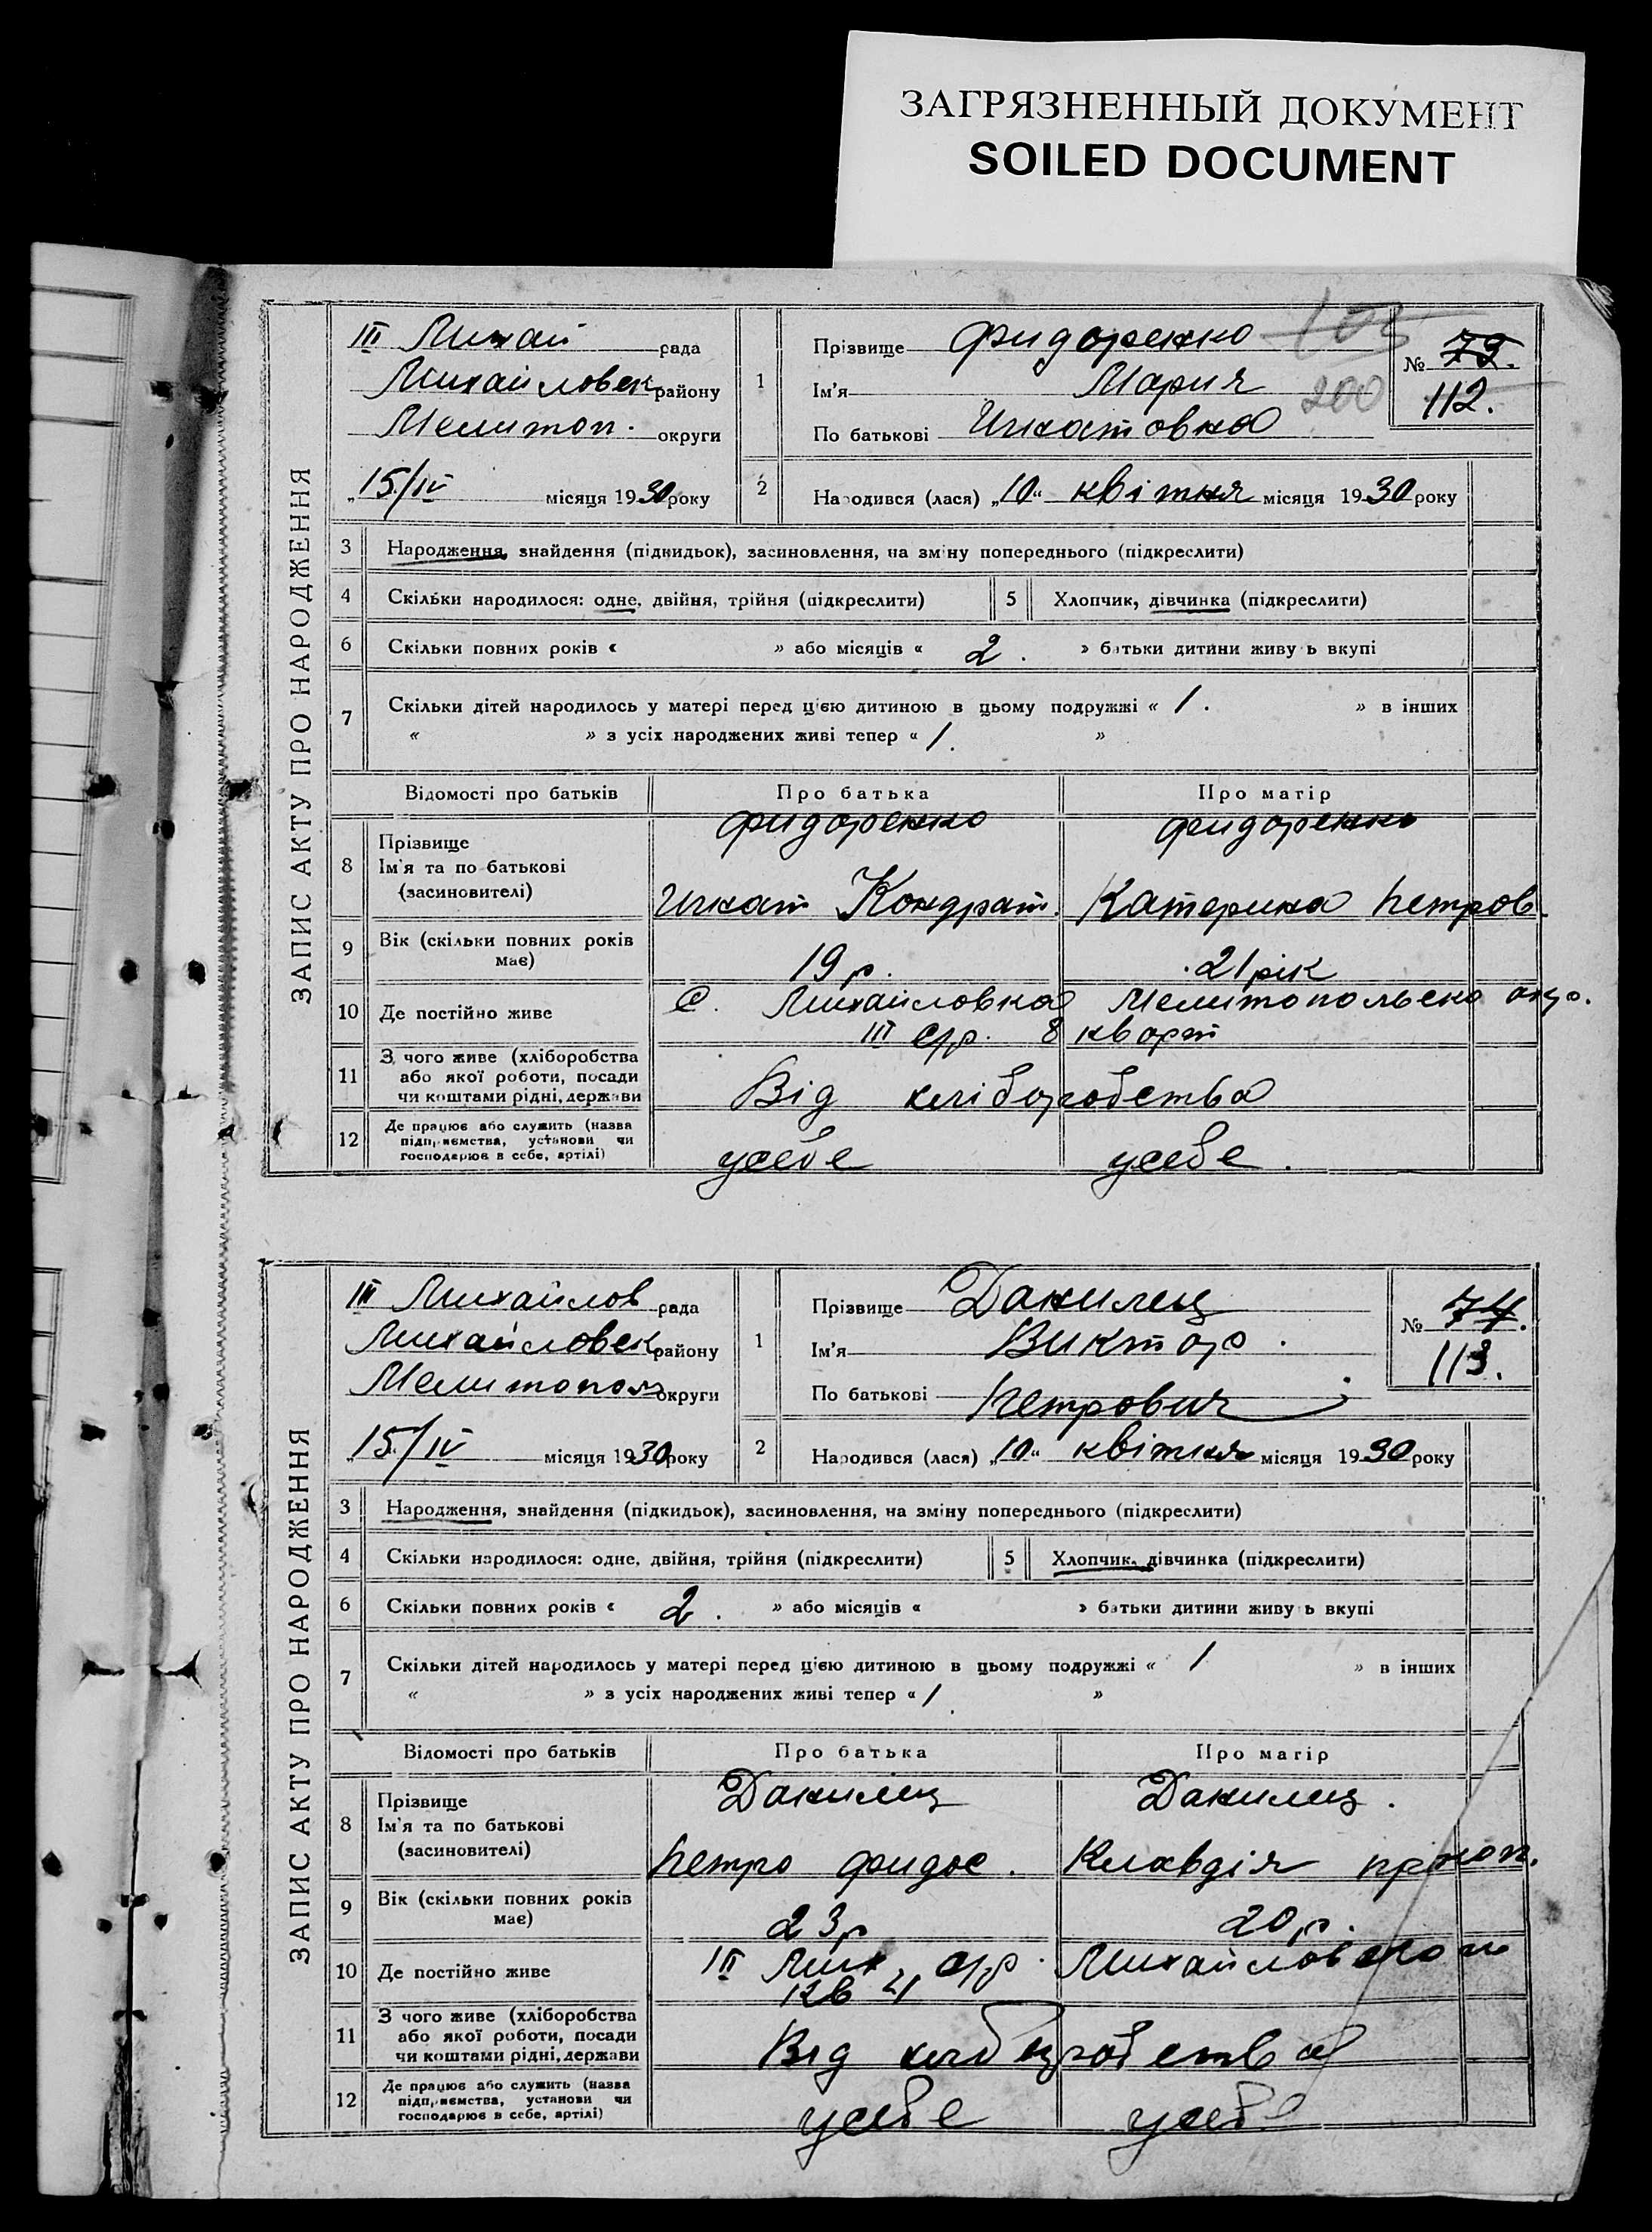 ЗАГРЯЗНЕННЫЙ ДОКУМЕНТ
SOILED DOCUMENT
ЗАПИС АКТУ ПРО НАРОДЖЕННЯ
III Михай рада
Михайловск району
Мелитоп. округи
„15/IV місяця 1930 року
1 Прізвище Фидоренко
Ім'я Мария
По батькові Игнатовна
200
№ 112.
2 Народився (лася) „10“ квітня місяця 1930 року
3 Народження, знайдення (підкидьок), засиновлення, на зміну попереднього (підкреслити)
4 Скільки народилося: одне, двійня, трійня (підкреслити) 5 Хлопчик, дівчинка (підкреслити)
6 Скільки повних років « » або місяців « 2. » батьки дитини живуть вкупі
7 Скільки дітей народилось у матері перед цією дитиною в цьому подружжі « 1. » в інших
« » з усіх народжених живі тепер « 1. »
Відомості про батьків Про батька Про матір
8 Прізвище Фидоренко Фидоренко
Ім'я та по батькові
(засиновителі) Игнат Кондрат. Катерина Петров.
9 Вік (скільки повних років
має) 19 р. 21 рік
10 Де постійно живе С. Михайловка Мелитопольско окр.
III с/р. 8 кварт
11 З чого живе (хліборобства
або якої роботи, посади
чи коштами рідні, держави Від хліборобства
12 Де працює або служить (назва
підприємства, установи чи
господарює в себе, артілі) усебе усебе.
ЗАПИС АКТУ ПРО НАРОДЖЕННЯ
III Михайлов рада
Михайловск району
Мелитопол округи
„15/IV місяця 1930 року
1 Прізвище Данилец
Ім'я Виктор.
По батькові Петрович
№ 74.
113.
2 Народився (лася) „10“ квітня місяця 1930 року
3 Народження, знайдення (підкидьок), засиновлення, на зміну попереднього (підкреслити)
4 Скільки народилося: одне, двійня, трійня (підкреслити) 5 Хлопчик, дівчинка (підкреслити)
6 Скільки повних років « 2. » або місяців « » батьки дитини живуть вкупі
7 Скільки дітей народилось у матері перед цією дитиною в цьому подружжі « 1 » в інших
« » з усіх народжених живі тепер « 1 »
Відомості про батьків Про батька Про матір
8 Прізвище Данилец Данилец.
Ім'я та по батькові
(засиновителі) Петро Фидос. Клавдія Прокоп.
9 Вік (скільки повних років
має) 23 р 20 р.
10 Де постійно живе III Мих с/р.
кв 4
11 З чого живе (хліборобства
або якої роботи, посади
чи коштами рідні, держави Від хліборобства
12 Де працює або служить (назва
підприємства, установи чи
господарює в себе, артілі) усебе усебе